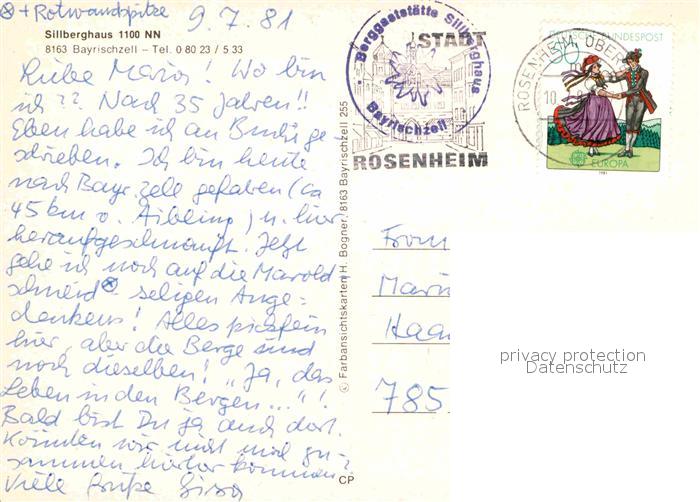 ⊗ + Rotwandspitze 9.7.81
Sillberghaus 1100 NN
8163 Bayrischzell – Tel. 0 80 23 / 5 33
Liebe Maria, Wo bin
ich?? Nach 35 Jahren!!
Eben habe ich an ge
schrieben. Ich bin heute
nach Bayr. zell gefahren (ca
45 km v. Aibling) u. hier
heraufgeschnauft. Jetzt
gehe ich noch auf die Marold
schneid ⊗ seligen Ange-
denkens! Alles picobello
hier, aber die Berge sind
noch dieselben! "Ja, das
Leben in den Bergen..."!
Bald bist Du ja auch dort.
Könnten wir nicht mal zu-
sammen hierher kommen?
Viele Grüße
© Farbansichtskarten H. Bogner, 8163 Bayrischzell 255
CP
Berggaststätte Sillberghaus
Bayrischzell
STADT
ROSENHEIM
ROSENHEIM, OBERB
10
DEUTSCHE BUNDESPOST
50
EUROPA
1981
Frau
Maria
Haa
785
privacy protection
Datenschutz